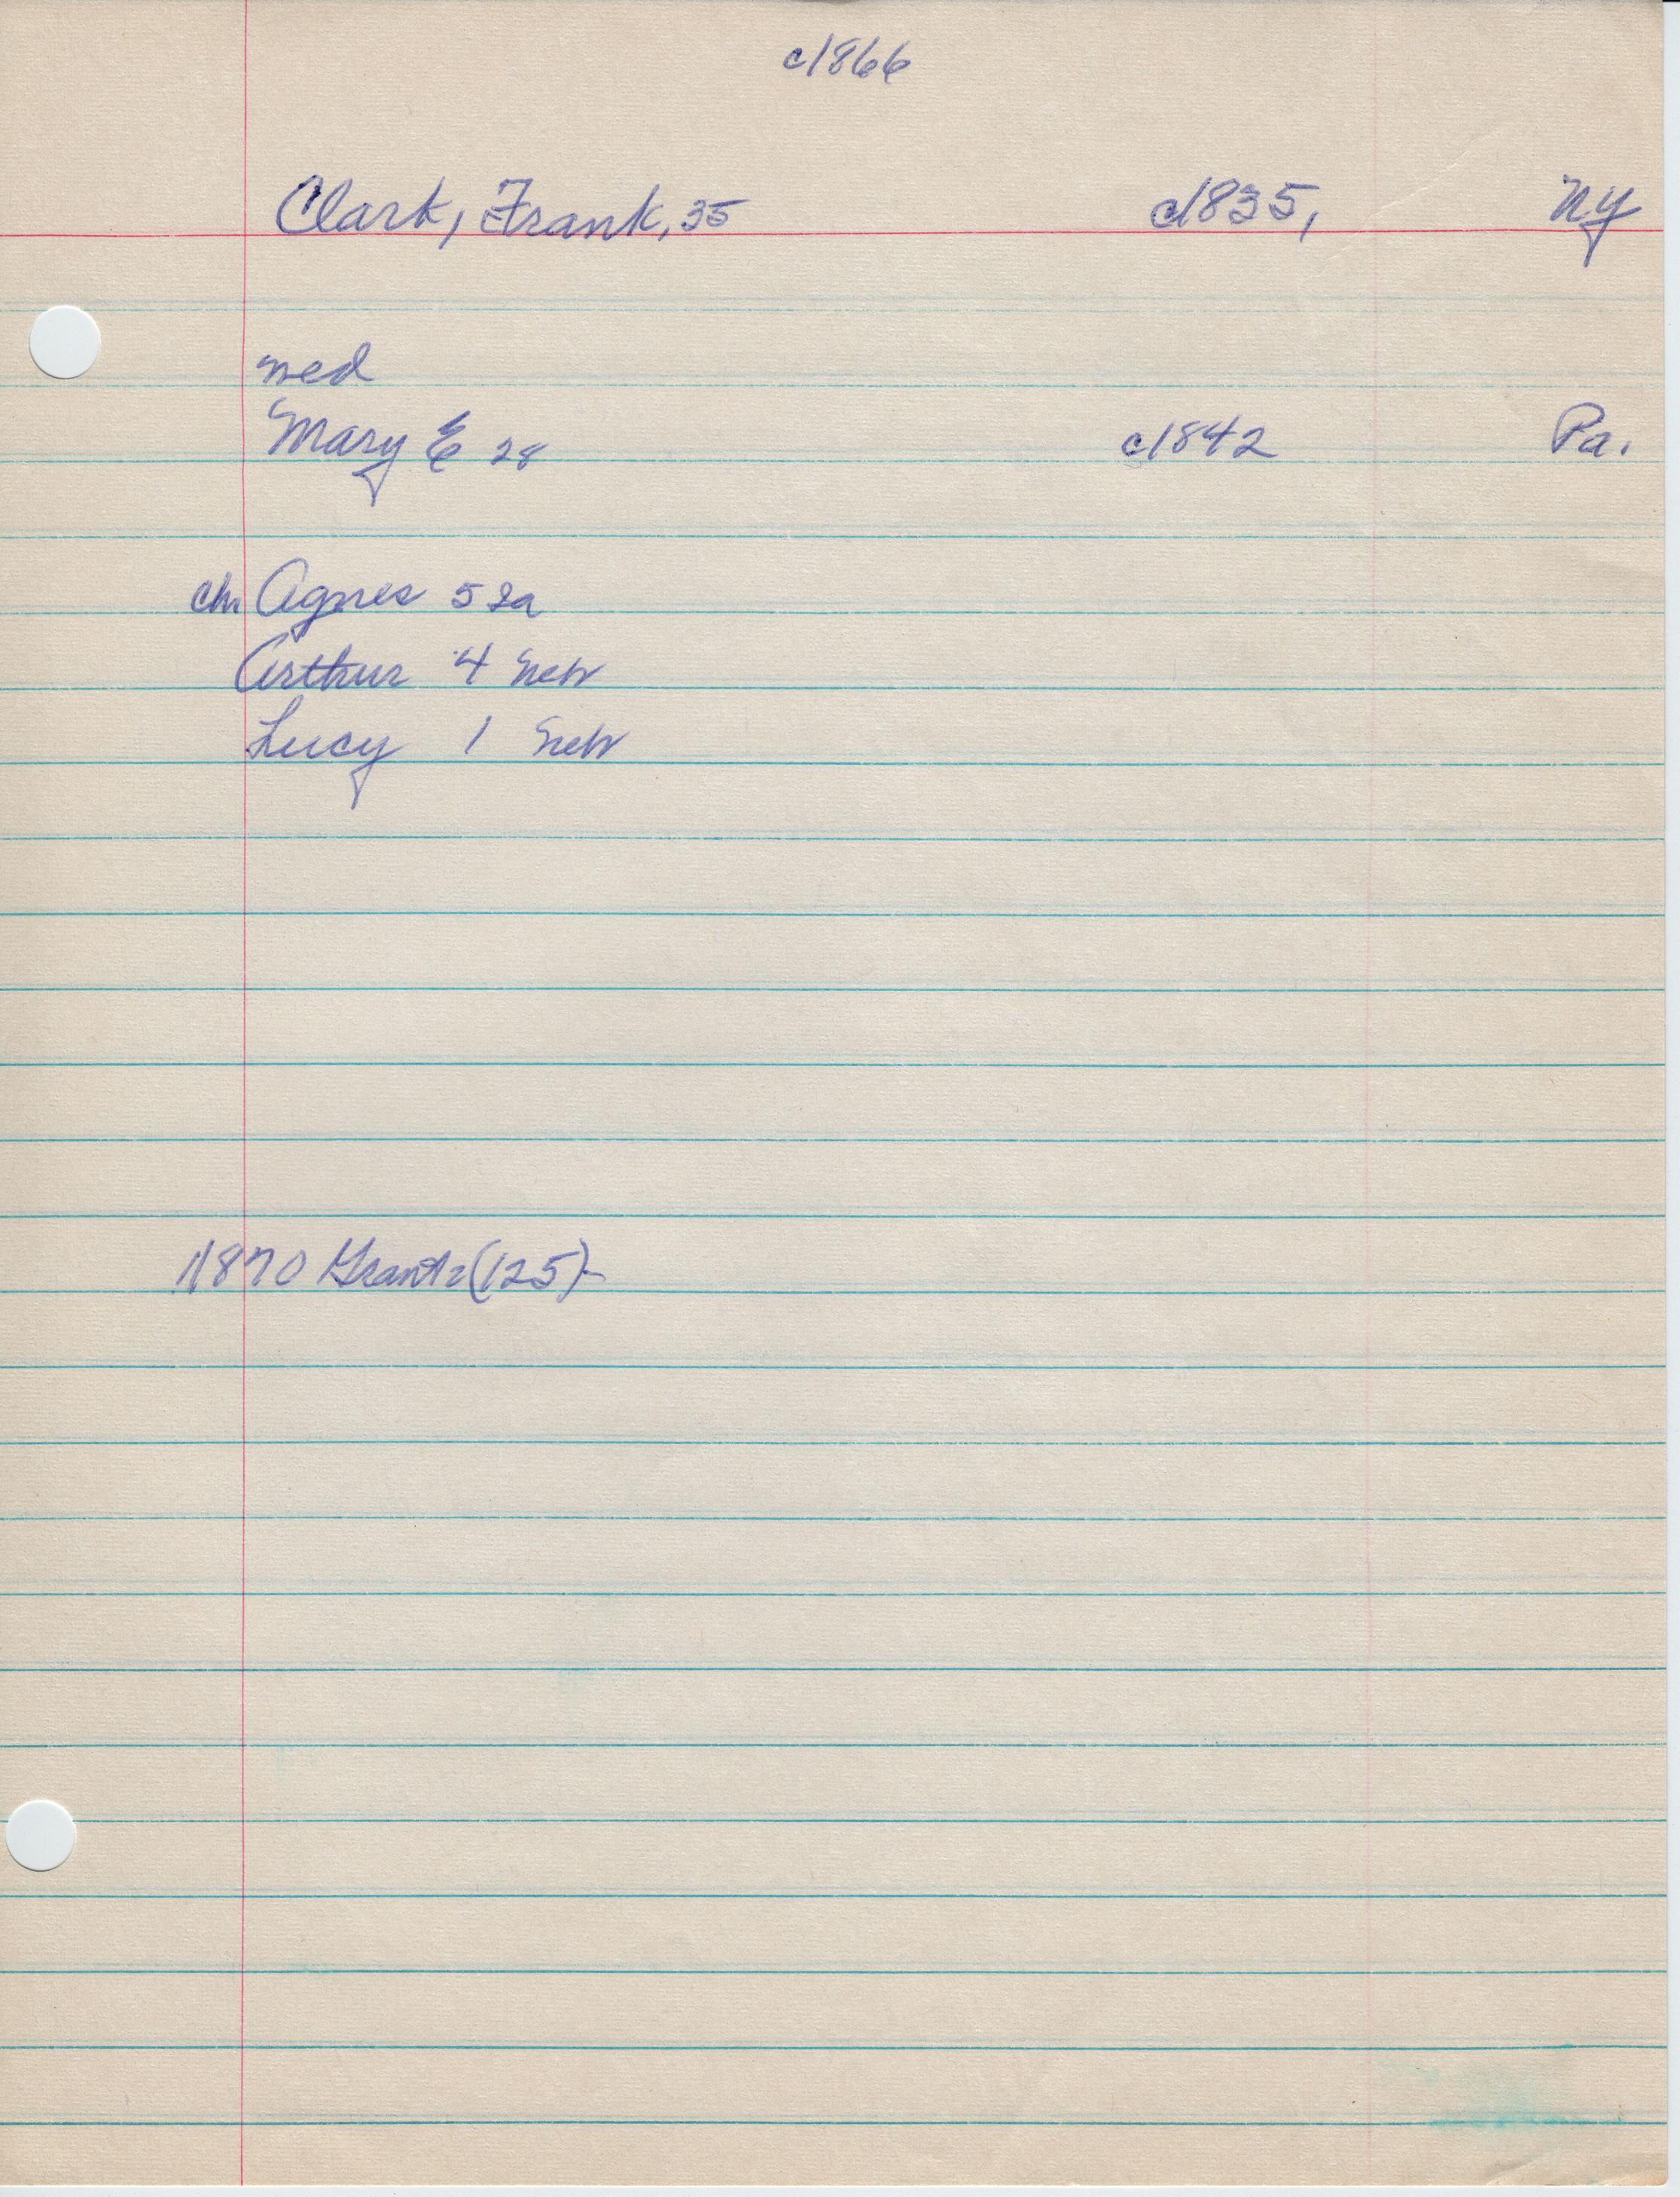 c1866
Clark, Frank, 35 c1835, NY
med
Mary E 28 c1842 Pa.
ch. Agnes 5 Ia
Arthur 4 Neb
Lucy 1 Neb
1870 (125)-